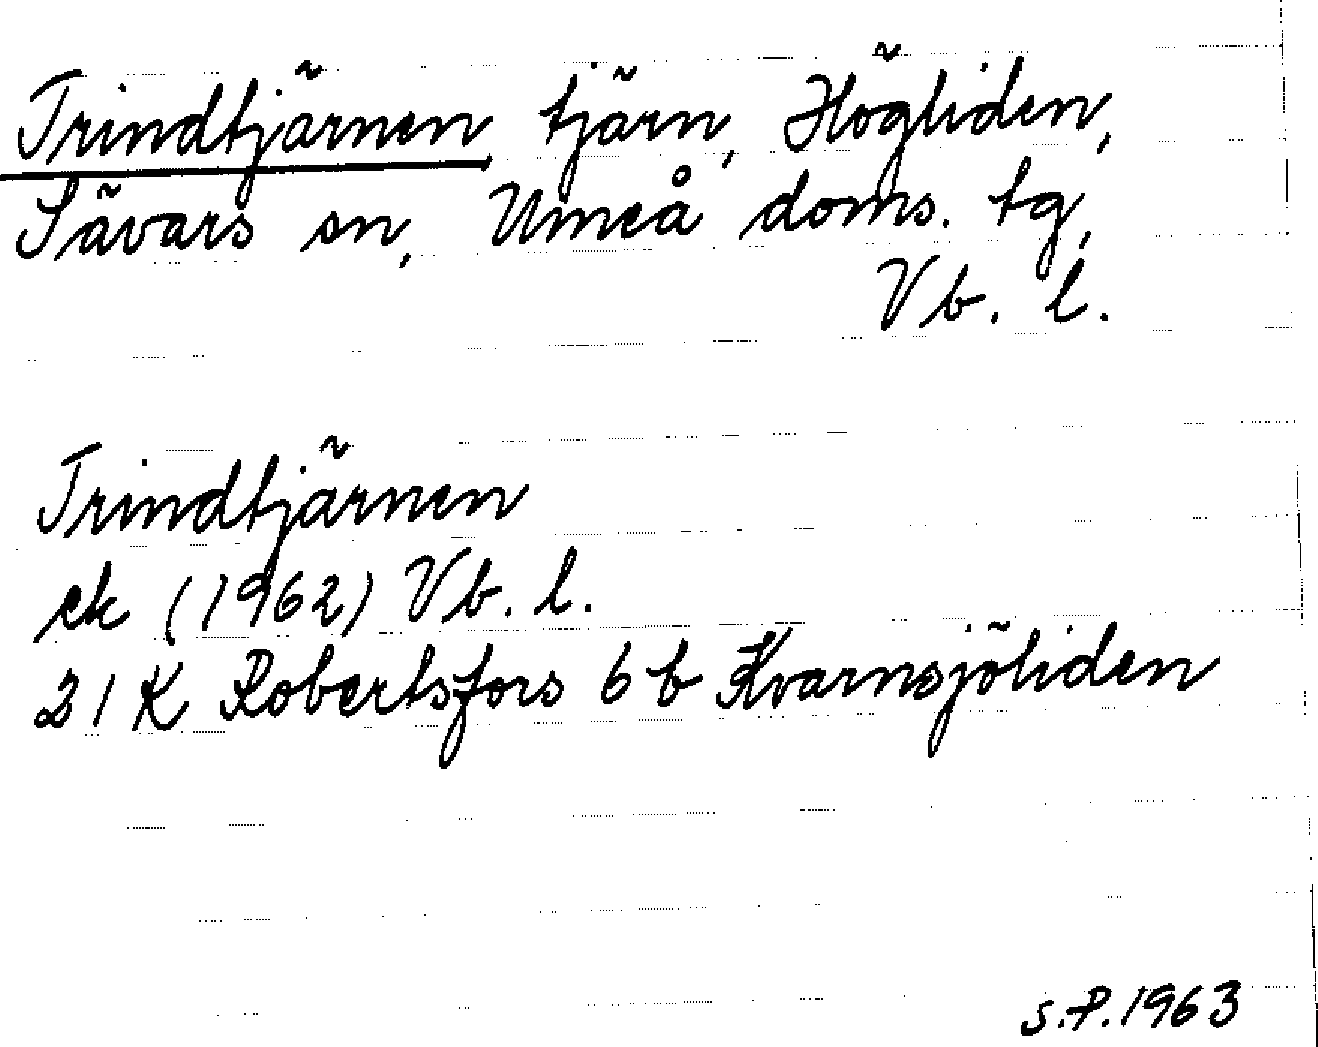 Trindtjärnen, tjärn, Högliden,
Sävars sn, Umeå doms. tg,
Vb. l.
Trindtjärnen
ek (1962) Vb. l.
21 K Robertsfors 6 b Kvarnsjöliden
S.P. 1963